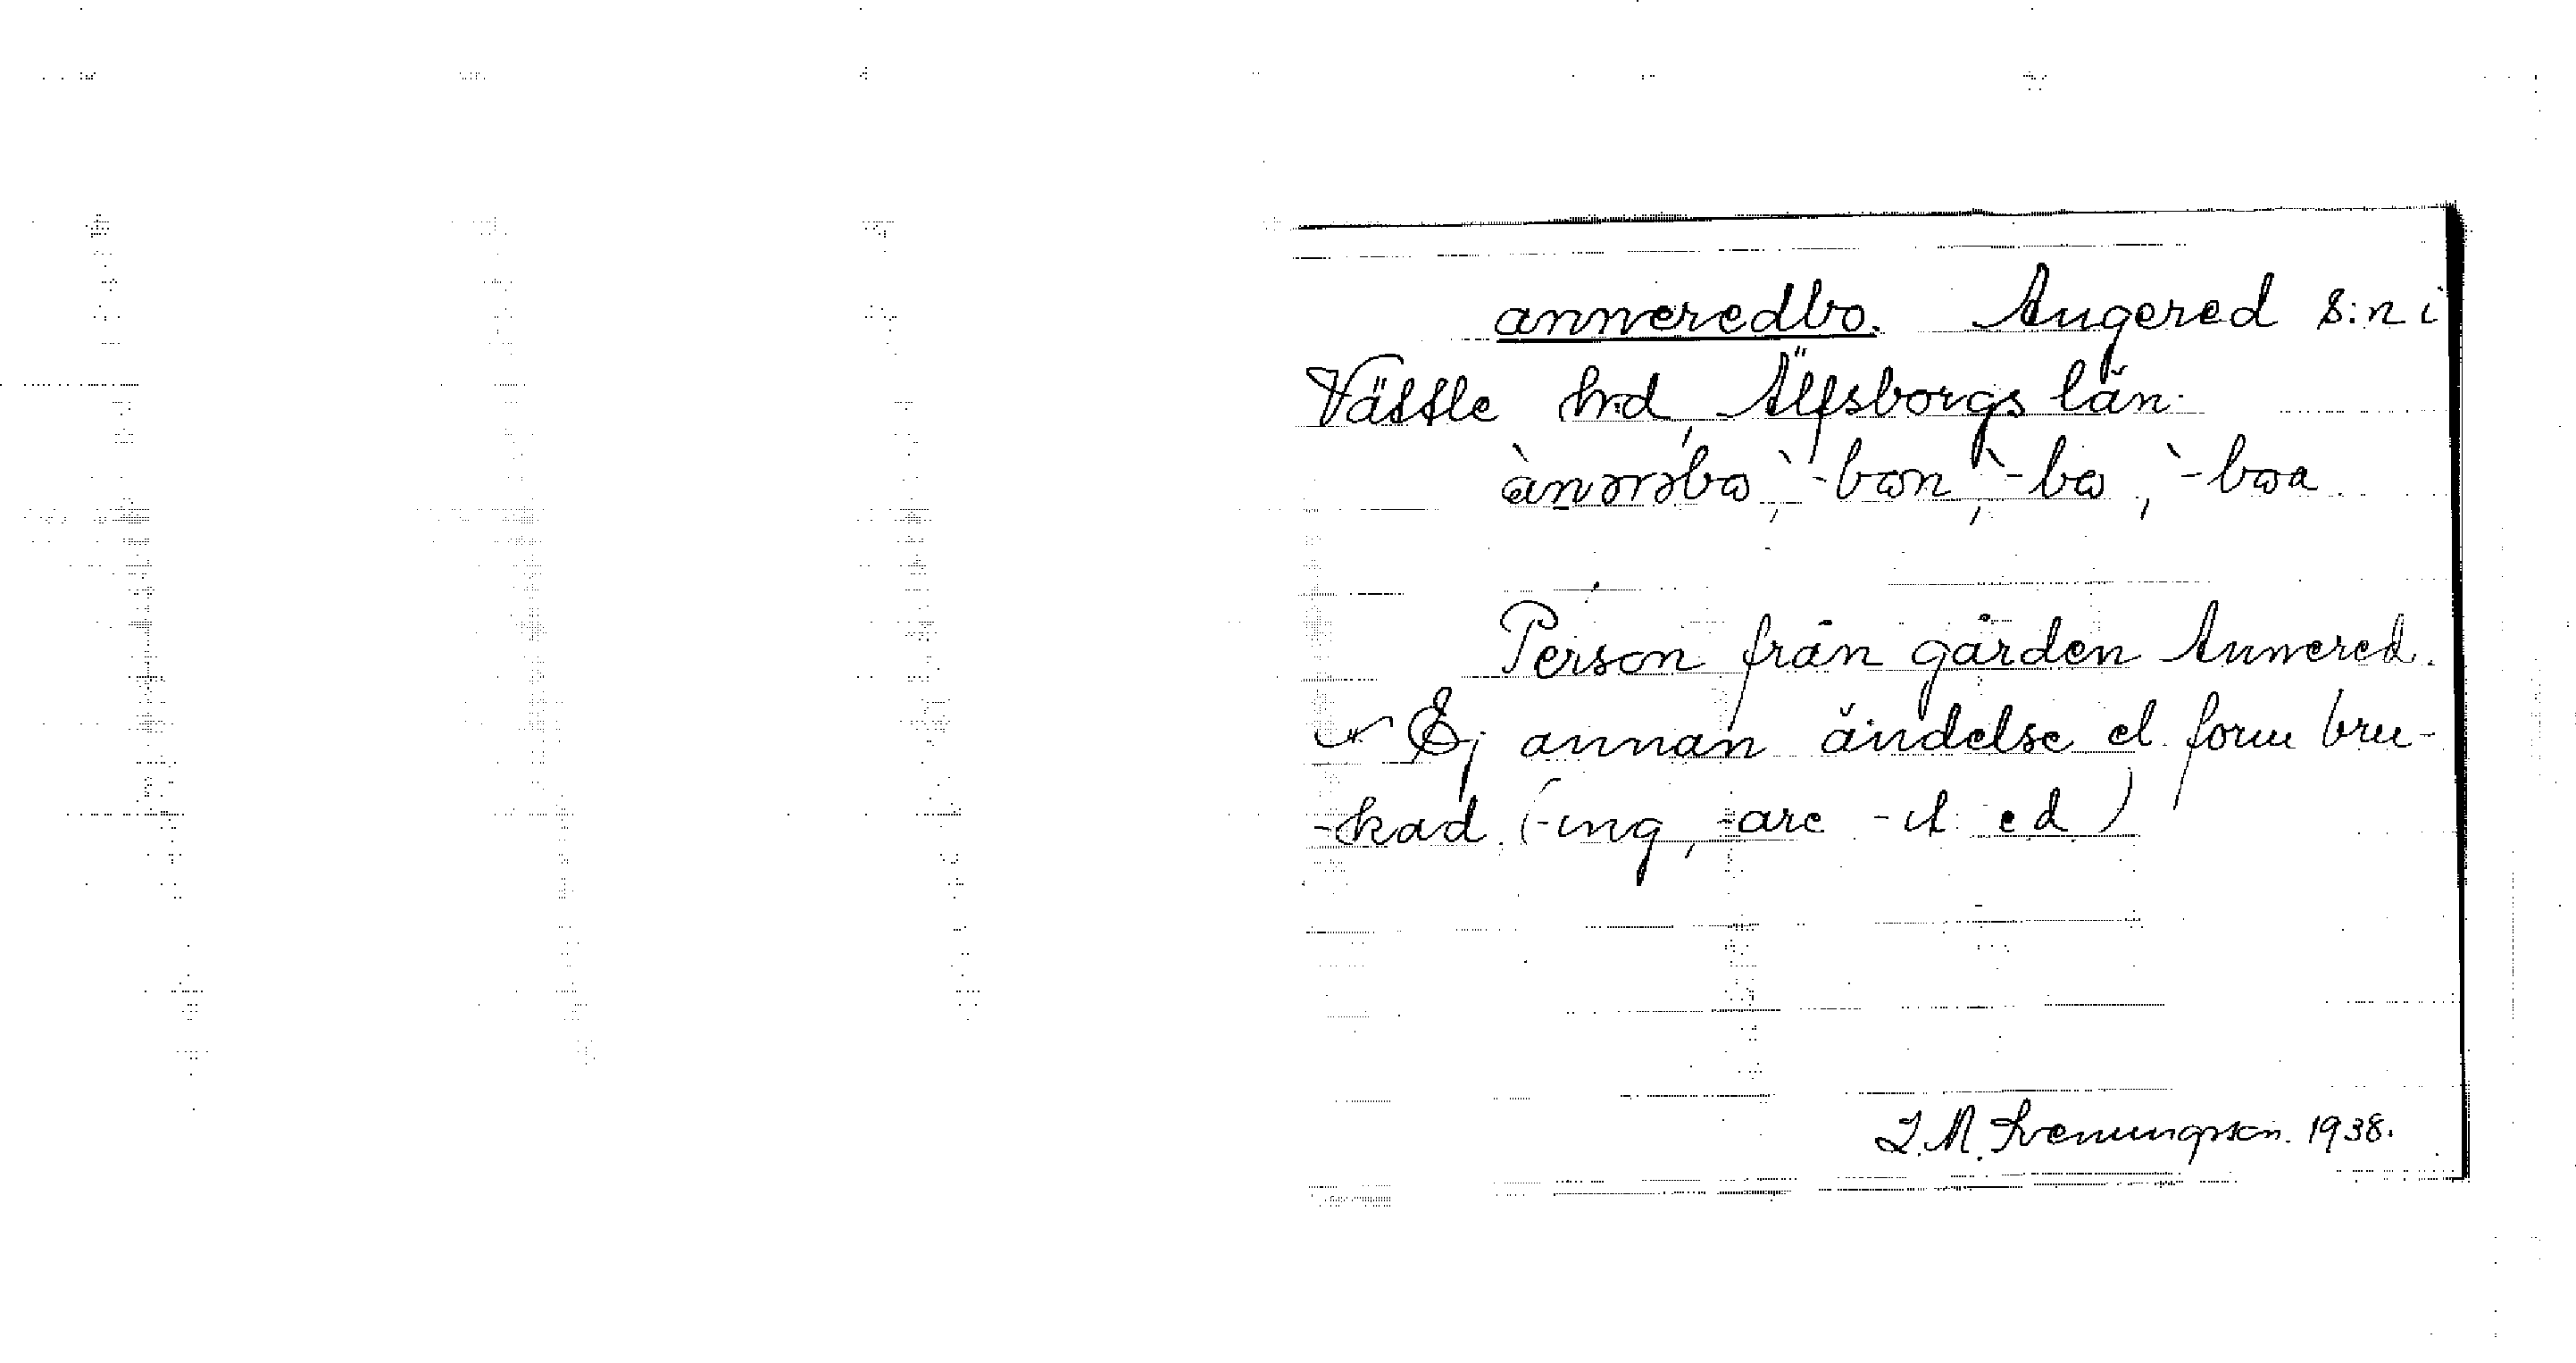 anneredbo. Angered s:n i
Vättle hrd, Älfsborgs län.
ànərəbω, `-bωn, `-bω, `-bωa
Person från gården Annered.
Ej annan ändelse el. form bru-
-kad. (-ing, -are -it ed)
I. M. Svenungsson. 1938.